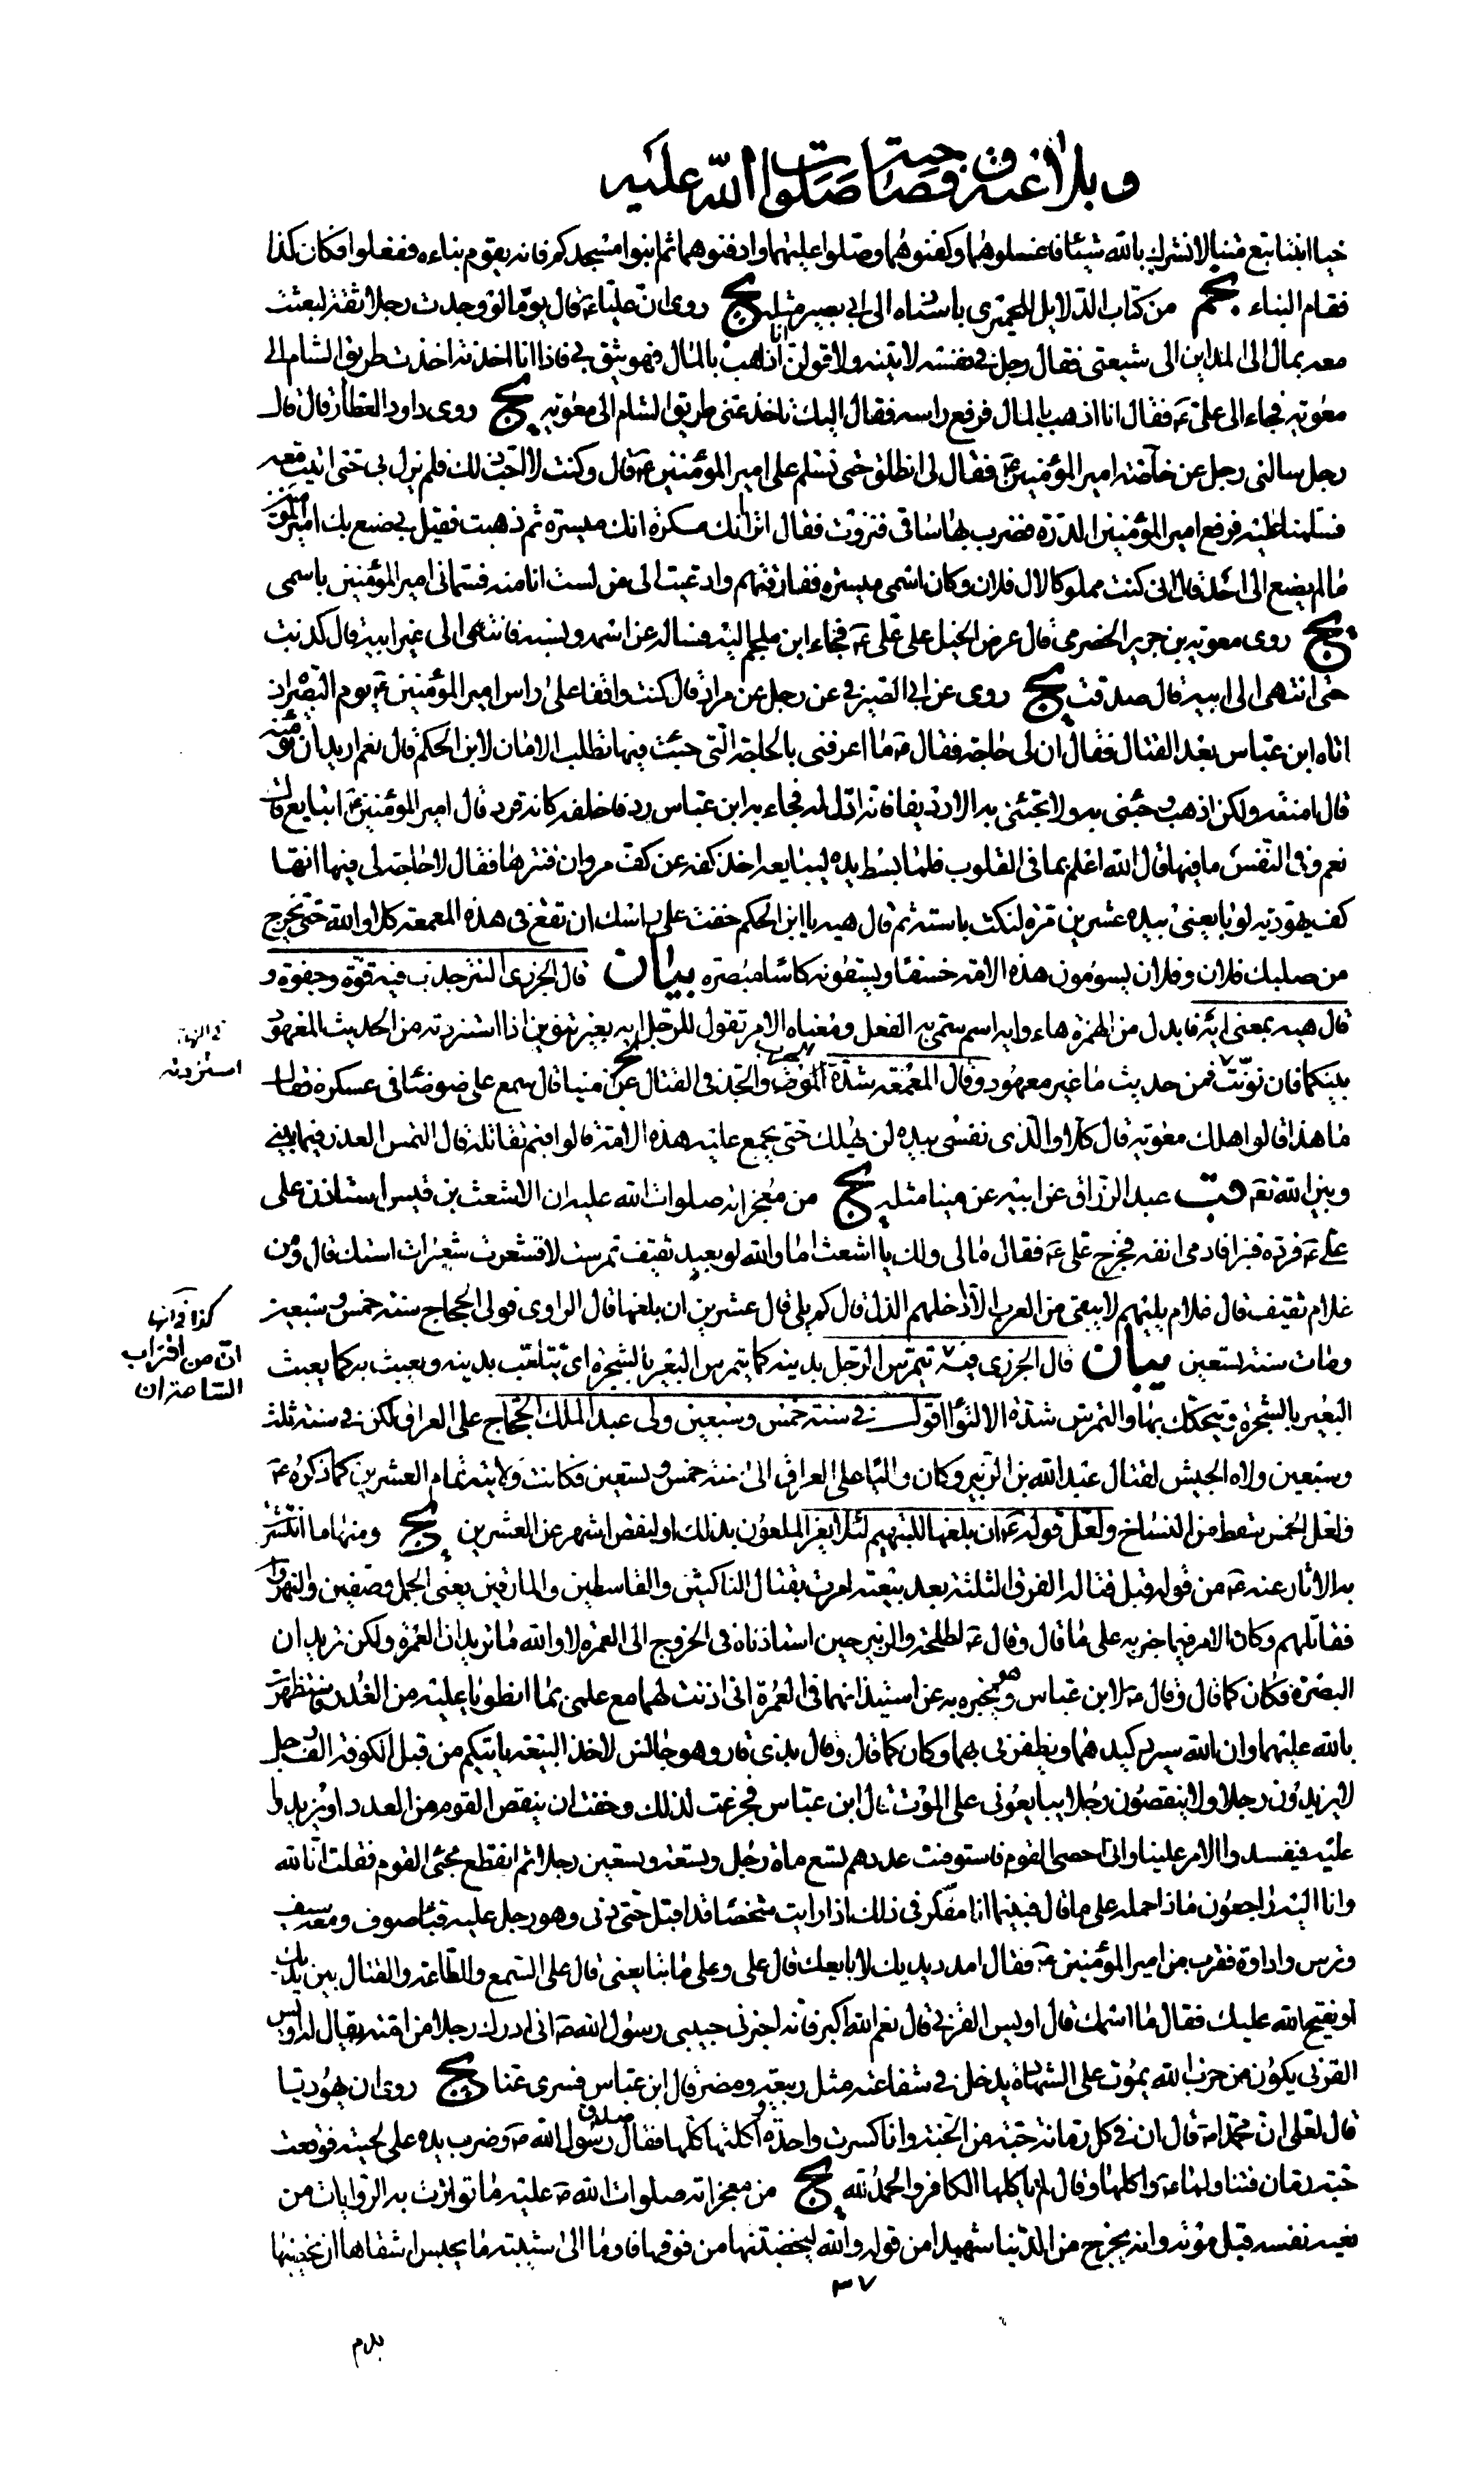 وبلاغته وفصاحته صلوات الله عليه
حبا ابنتا تبع متنا لا نشرك بالله شيئا فاغسلوهما وكفنوهما وصلوا عليهما وادفنوهما ثم ابنوا مسجدكم فانه يقوم بناءه ففعلوا فكان كذا
فقام البناء نجم من كتاب الدلايل للحميرى باسناده الى ابى بصير مثله يج روى ان عليا ع قال يوما لو وجدت رجلا ثقة لبعثت
معه بمال الى المداين الى شيعتى فقال رجل فى نفسه لاتينه ولاقولن انا اذهب بالمال فهو يثق بى فاذا انا اخذته اخذت طريق الشام الى
معوية فجاء الى على ع فقال انا اذهب بالمال فرفع راسه فقال اليك تاخذ عنى طريق الشام الى معوية يج روى داود العطار قال قال
رجل سالنى رجل عن خاصة امير المؤمنين ع فقال لى انطلق حتى نسلم على امير المؤمنين ع قال وكنت لا احب ذلك فلم يزل بى حتى اتيت معه
فسلمنا عليه فرفع امير المؤمنين الدرة فضرب بها ساقى فنزوت فقال اترى انك مكره انك ميسرة ثم ذهبت فقيل لى صنع بك امير المؤمنين
ما لم يصنع الى احد قال انى كنت مملوكا لال فلان وكان اسمى ميسره ففارقتهم وادعيت الى من لست انا منه فسمانى امير المؤمنين باسمى
يج روى معوية بن جرير الحضرمى قال عرض الخيل على على ع فجاء ابن ملجم اليه فساله عن اسمه ونسبه فانتهى الى غير ابيه قال كذبت
حتى انتهى الى ابيه قال صدقت يج روى عن ابى الصيرفى عن رجل عن مراد قال كنت واقفا على راس امير المؤمنين ع يوم البصرة اذ
اتاه ابن عباس بعد القتال فقال ان لى حاجة فقال ع ما اعرفنى بالحاجة التى جئت فيها تطلب الامان لابن الحكم قال نعم اريد ان تؤمنه
قال امنته ولكن اذهب وجئنى به ولا تجئنى به الا رديفا فانه اذل له فجاء به ابن عباس ردفا خلفه كانه قرد قال امير المؤمنين ع اتبايع قال
نعم وفى النفس ما فيها قال الله اعلم بما فى القلوب فلما بسط يده ليبايعه اخذ كفه عن كف مروان فنترها فقال لا حاجة لى فيها انها
كف يهودية لو بايعنى بيده عشرين مرة لنكث باسته ثم قال هيه يا ابن الحكم خفت على راسك ان تقع فى هذه المعمعة كلا والله حتى يخرج
من صلبك فلان وفلان يسومون هذه الامة خسفا ويسقونه كاسا مصبرة بيان قال الجزرى النتر جذب فيه قوة وجفوة و
قال هيه بمعنى ايه فابدل من الهمزة هاء وايه اسم سمى به الفعل ومعناه الامر تقول للرجل ايه بغير تنوين اذا استزدته من الحديث المعهود
بينكما فان نونت فمن حديث ما غير معهود وقال المعمعة شدة الحرب والجد فى القتال يج عن مينا قال سمع على ضوضا فى عسكره فقال
ما هذا قالوا هلك معوية قال كلا والذى نفسى بيده لن يهلك حتى يجمع عليه هذه الامة قالوا فبم تقاتله قال التمس العذر فيما بينى
وبين الله تع قب عبد الرزاق عن ابيه عن مينا مثله يج من معجزاته صلوات الله عليه ان الاشعث بن قيس استاذن على
على ع فرده قنبر فادمى انفه فخرج على ع فقال مالى ولك يا اشعث اما والله لو بعبد ثقيف تمرست لاقشعرت شعيرات استك قال ومن
غلام ثقيف قال غلام يليهم لا يبقى من العرب الا ادخلهم الذل قال كم يلى قال عشرين ان بلغها قال الراوى فولى الحجاج سنة خمس وسبعين
ومات سنة تسعين بيان قال الجزرى فيه تمرس الرجل بدينه كما يتمرس البعير بالشجرة اى يتلعب بدينه ويعبث به كما يعبث
البعير بالشجرة ويتحكك بها والتمرس شدة الالتواء اقول فى سنة خمس وسبعين ولى عبد الملك الحجاج على العراق لكن فى سنة ثلث
وسبعين ولاه الجيش لقتال عبد الله بن الزبير وكان واليا على العراق الى سنة خمس وتسعين فكانت ولايته تمام العشرين كما ذكره ع
ولعل الخمس سقط من النساخ ولعل قوله ع ان بلغها للتبهيم لئلا يغر الملعون بذلك او لنقص اشهر عن العشرين يج ومنها ما انتشر
به الاثار عنه ع من قوله قبل قتاله الفرق الثلثة بعد بيعته امرت بقتال الناكثين والقاسطين والمارقين يعنى الجمل وصفين والنهروان
فقاتلهم وكان الامر فيما خبر به على ما قال وقال ع لطلحة والزبير حين استاذناه فى الخروج الى العمرة لا والله ما تريدان العمرة ولكن تريدان
البصرة فكان كما قال وقال ع لابن عباس وهو يخبره به عن استيذانهما فى العمرة انى اذنت لهما مع علمى بما انطويا عليه من الغدر واستظهرت
بالله عليهما وان الله سيرد كيدهما ويظفرنى بهما وكان كما قال وقال بذى قار وهو جالس لاخذ البيعة ياتيكم من قبل الكوفة الف رجل
لا يزيدون رجلا ولا ينقصون رجلا يبايعونى على الموت قال ابن عباس فجزعت لذلك وخفت ان ينقص القوم من العدد او يزيدوا
عليه فيفسدوا الامر علينا وانى احصى القوم فاستوفت عددهم تسع ماة رجل وتسعة وتسعين رجلا ثم انقطع مجئ القوم فقلت انا لله
وانا اليه راجعون ماذا حمله على ما قال فبينما انا مفكر فى ذلك اذا رايت شخصا قد اقبل حتى دنى وهو رجل عليه قباء صوف ومعه سيف
وترس واداوة فقرب من امير المؤمنين ع فقال امدد يديك لابايعك قال على وعلى ما تبايعنى قال على السمع والطاعة والقتال بين يديك
او يفتح الله عليك فقال ما اسمك قال اويس القرنى قال نعم الله اكبر فانه اخبرنى حبيبى رسول الله ص انى ادرك رجلا من امته يقال له اويس
القرنى يكون من حزب الله يموت على الشهادة يدخل فى شفاعته مثل ربيعة ومضر قال ابن عباس فسرى عنا يج روى ان يهوديا
قال لعلى ان محمدا ص قال ان فى كل رمانة حبة من الجنة وانا كسرت واحدة واكلتها كلها فقال صدق رسول الله ص وضرب يده على لحيته فوقعت
حبة رمان فتناولها ع واكلها وقال لم ياكلها الكافر والحمد لله يج من معجزاته صلوات الله عليه ما تواترت به الروايات من
نعيه نفسه قبل موته وانه يخرج من الدنيا شهيدا من قوله والله ليخضبنها من فوقها فاوما الى شيبته ما يحبس اشقاها ان يخضبها
٣٧
بدم
فى النهاية
استزدته
كذا فى
ان من اقتراب
الساعة ان